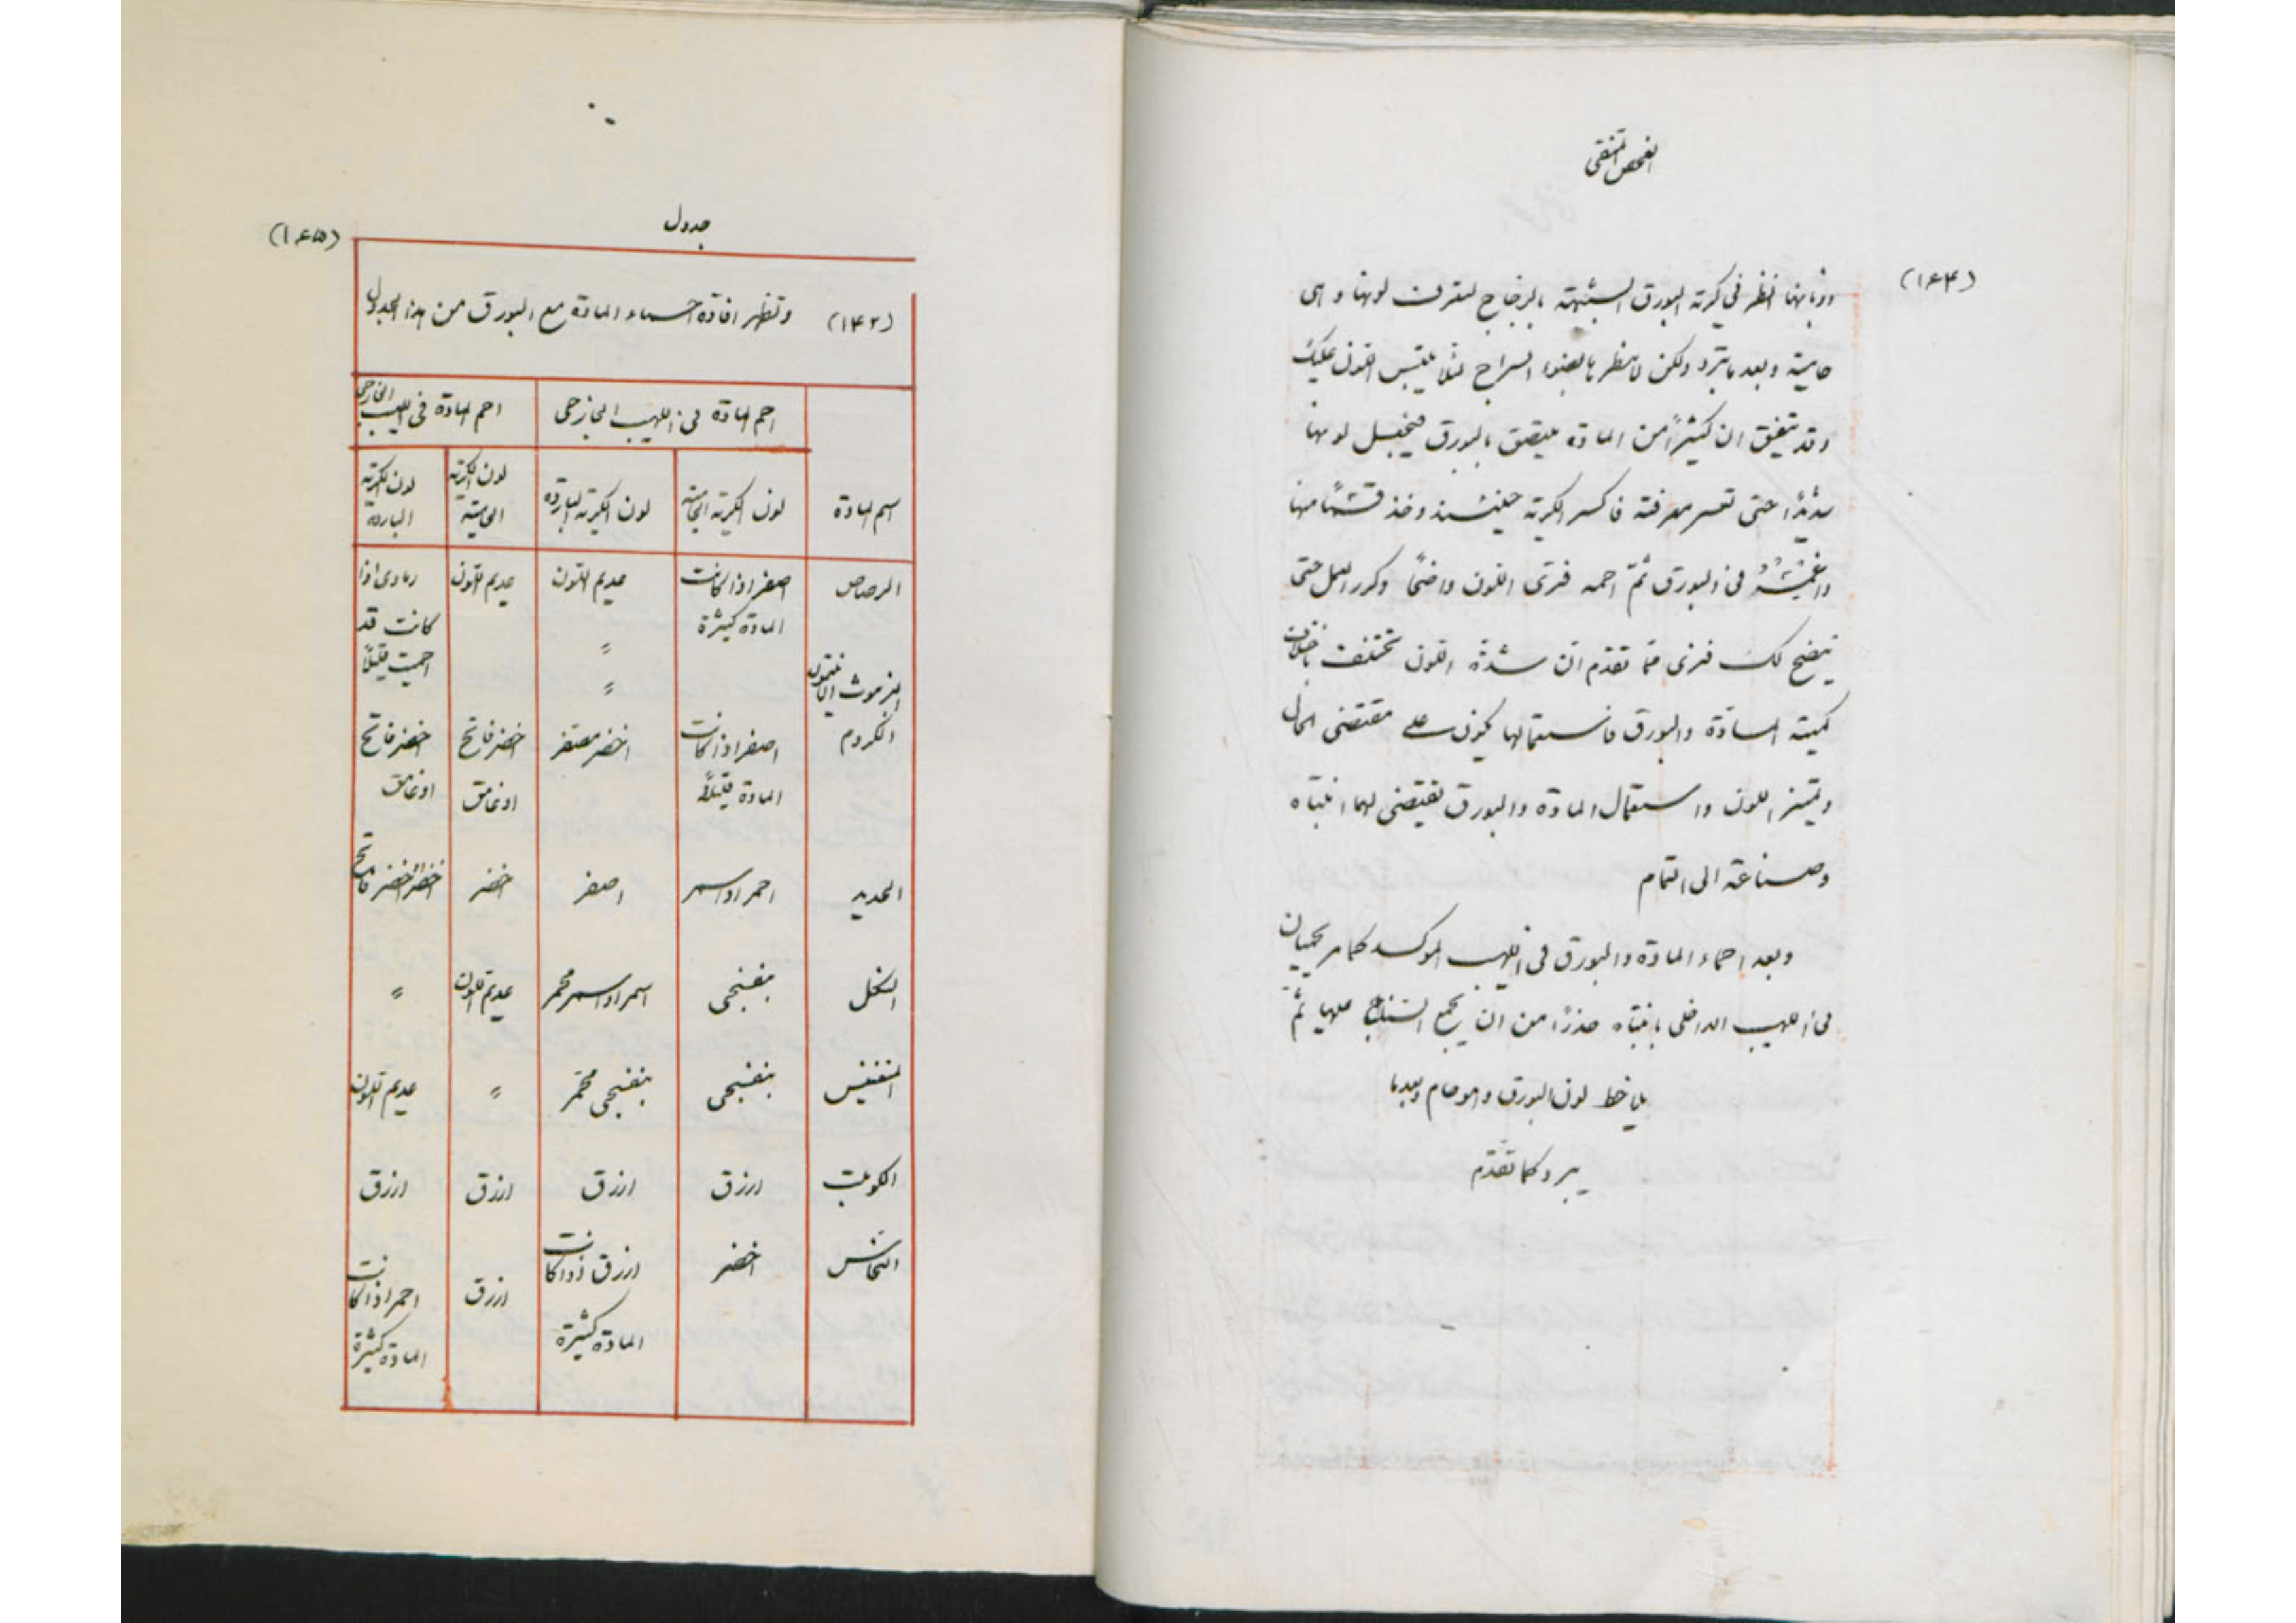 الفحص المنقى
(١۶۴)
وذبابها انظر في كرية البورق الشبيهة بالزجاج لتعرف لونها وهى
حامية وبعد ما تبرد ولكن لا تنظرها بضوء السراج لئلا يلتبس اللون عليك
وقد يتفق ان كثيراً من المادة يلتصق بالبورق فيجعل لونها
شديداً حتى تعسر معرفته فاكسر الكرية حينئذ وخذ قسماً منها
واغمسه في البورق ثمّ احمه فترى اللون واضحاً وكرر العمل حتى
يتضح لك فترى ممّا تقدّم انّ شدّة اللون تختلف باختلاف
كميّة المادّة والبورق فاستعمالها يكون على مقتضى الحال
وتميز اللون واستعمال المادّة والبورق يقتضى لهما انتباه
وصناعة الى التمام
وبعد احماء المادّة والبورق فى اللهيب الموكسد كما مر يحميان
فى اللهيب الداخلى بانتباه حذرًا من ان يجمع السناج عليها ثمّ
يلاحظ لون البورق وهو حام وبعدما
يبرد كما تقدّم
جدول
(١۶۵)
(١۴٢) وتظهر افادة احماء المادة مع البورق من هذا الجدول
احم المادة فى اللهيب الخارجى احم المادة فى اللهيب الخارجى
اسم المادة لون الكرية الحامية لون الكرية الباردة لون الكرية الحامية لون الكرية الباردة
الرصاص اصفر اذا كانت المادة كثيرة عديم اللون عديم اللون رمادى اذا كانت قد احميت قليلاً
البزموث الانتيمون " "
الكروم اصفر اذا كانت المادة قليلاً اخضر مصفر اخضر فاتح اوغامق اخضر فاتح اوغامق
الحديد احمر او اسمر اصفر اخضر اخضر اخضر فاتح
النكل بنفسجى اسمر او اسمر محمر عديم اللون "
المنغنيس بنفسجى بنفسجى محمّر " عديم اللون
الكوبلت ازرق ازرق ازرق ازرق
النحاس اخضر ازرق اذا كانت المادة كثيرة ازرق احمر اذا كانت المادة كثيرة